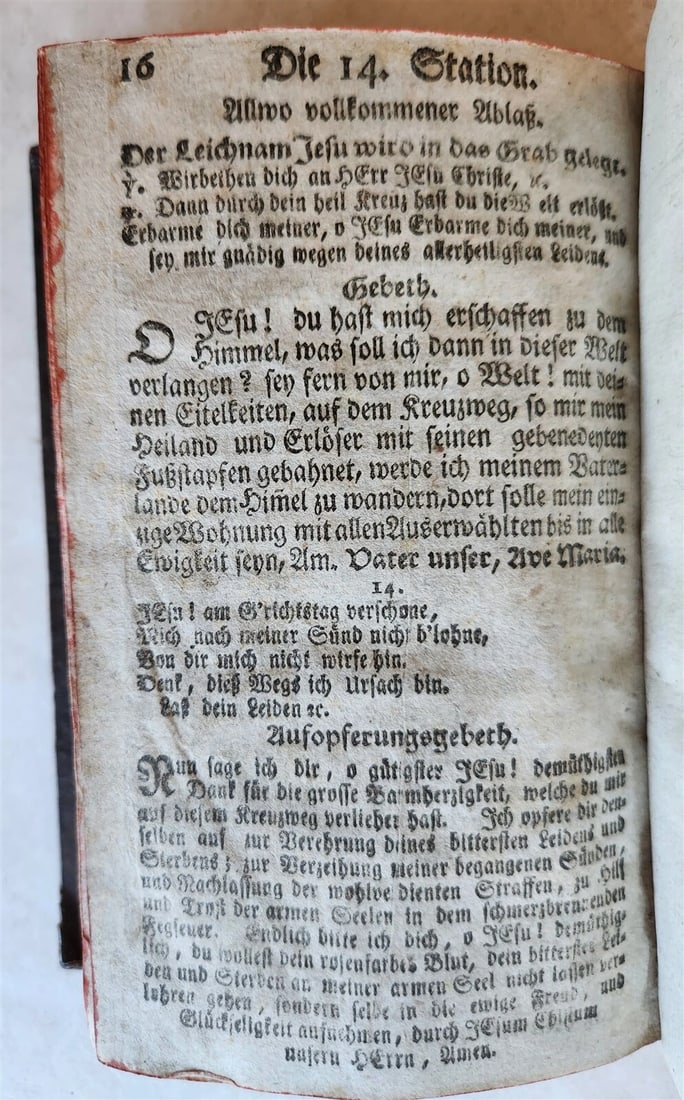 16 Die 14. Station.
Allwo vollkommener Ablaß.
Der Leichnam Jesu wird in das Grab gelegt.
℣. Wirbethen dich an HErr JEsu Christe, ꝛc.
℟. Dann durch dein heil Kreuz hast du die Welt erlößt.
Erbarme dich meiner, o JEsu Erbarme dich meiner, und
sey mir gnädig wegen deines allerheiligsten Leidens.
Gebeth.
O JEsu! du hast mich erschaffen zu dem
Himmel, was soll ich dann in dieser Welt
verlangen? sey fern von mir, o Welt! mit dei-
nen Eitelkeiten, auf dem Kreuzweg, so mir mein
Heiland und Erlöser mit seinen gebenedeyten
Fußstapfen gebahnet, werde ich meinem Vater-
lande dem Him̄el zu wandern, dort solle mein ein-
zige Wohnung mit allen Auserwählten bis in alle
Ewigkeit seyn, Am. Vater unser, Ave Maria.
14.
JEsu! am G'richtstag verschone,
Mich nach meiner Sünd nicht b'lohne,
Von dir mich nicht wirfe hin.
Denk, dieß Wegs ich Ursach bin.
Laß dein Leiden ꝛc.
Aufopferungsgebeth.
Nun sage ich dir, o gütigster JEsu! demüthigsten
Dank für die grosse Barmherzigkeit, welche du mir
auf diesem Kreuzweg verliehen hast. Ich opfere dir den-
selben auf zur Verehrung deines bittersten Leidens und
Sterbens; zur Verzeihung meiner begangenen Sünden,
und Nachlassung der wohlverdienten Straffen, zu Hilf
und Trost der armen Seelen in dem schmerzbrennenden
Fegfeuer. Endlich bitte ich dich, o JEsu! demüthig-
lich, du wollest dein rosenfarbes Blut, dein bitterstes Lei-
den und Sterben an meiner armen Seel nicht lassen ver-
lohren gehen, sondern selbe in die ewige Freud, und
Glückseligkeit aufnehmen, durch JEsum Christum
unsern HErrn, Amen.